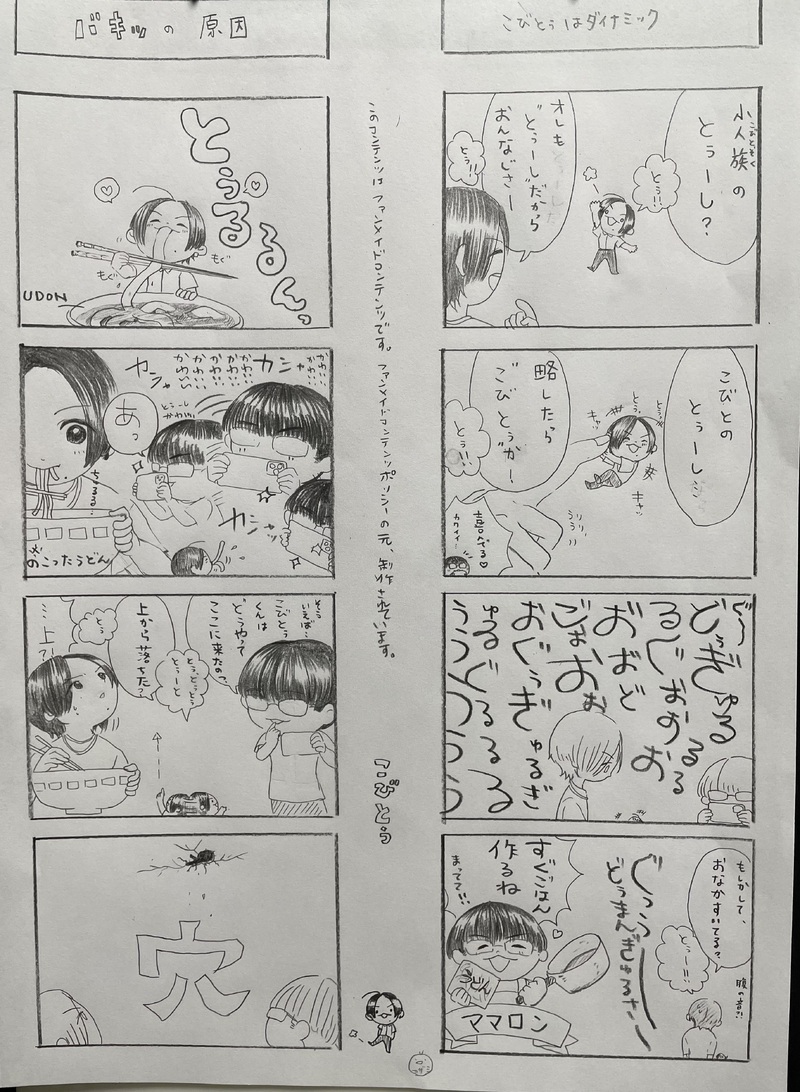 こびとぅはダイナミック
小人族の
こびとぞく
とぅーし？
とぅ!!
オレも
"とぅーし"だから
おんなじさー
とぅ!!
こびとの
とぅーし…
とぅ。
とぅ。
キャッ
キャッ
略したら
こびとぅかー！
とぅ!!
うりうり
喜んでる♡
カワイイ…
ぐ〜
どぅぎゅる
るじおおるる
おおどお
ごおおぉ
おぐぅぎゅるぎ
ゅるぐるるる
もしかして、
おなかすいてる？
とぅ…!!
腹の音!!
ぐっうー
どぅまんぎゅるさー
すぐごはん
作るね
まってて!!
うどん
ママロン
このコンテンツはファンメイドコンテンツです。ファンメイドコンテンツポリシーの元、制作されています。
こびとぅ
バキッの原因
とぅるるんっ
もぐ
もぐ
UDON
かわいい
かわいい
かわいい
かわいい
カシャ
カシャ
とぅーし
かわいい
あっ
ちゅるる…
カシャッ
※のこったうどん
そう
いえば…
こびとぅ
くんは
どうやって
ここに来たの？
とぅとぅとぅ
とぅーと
上から落ちた？
とぅ
…上？
穴